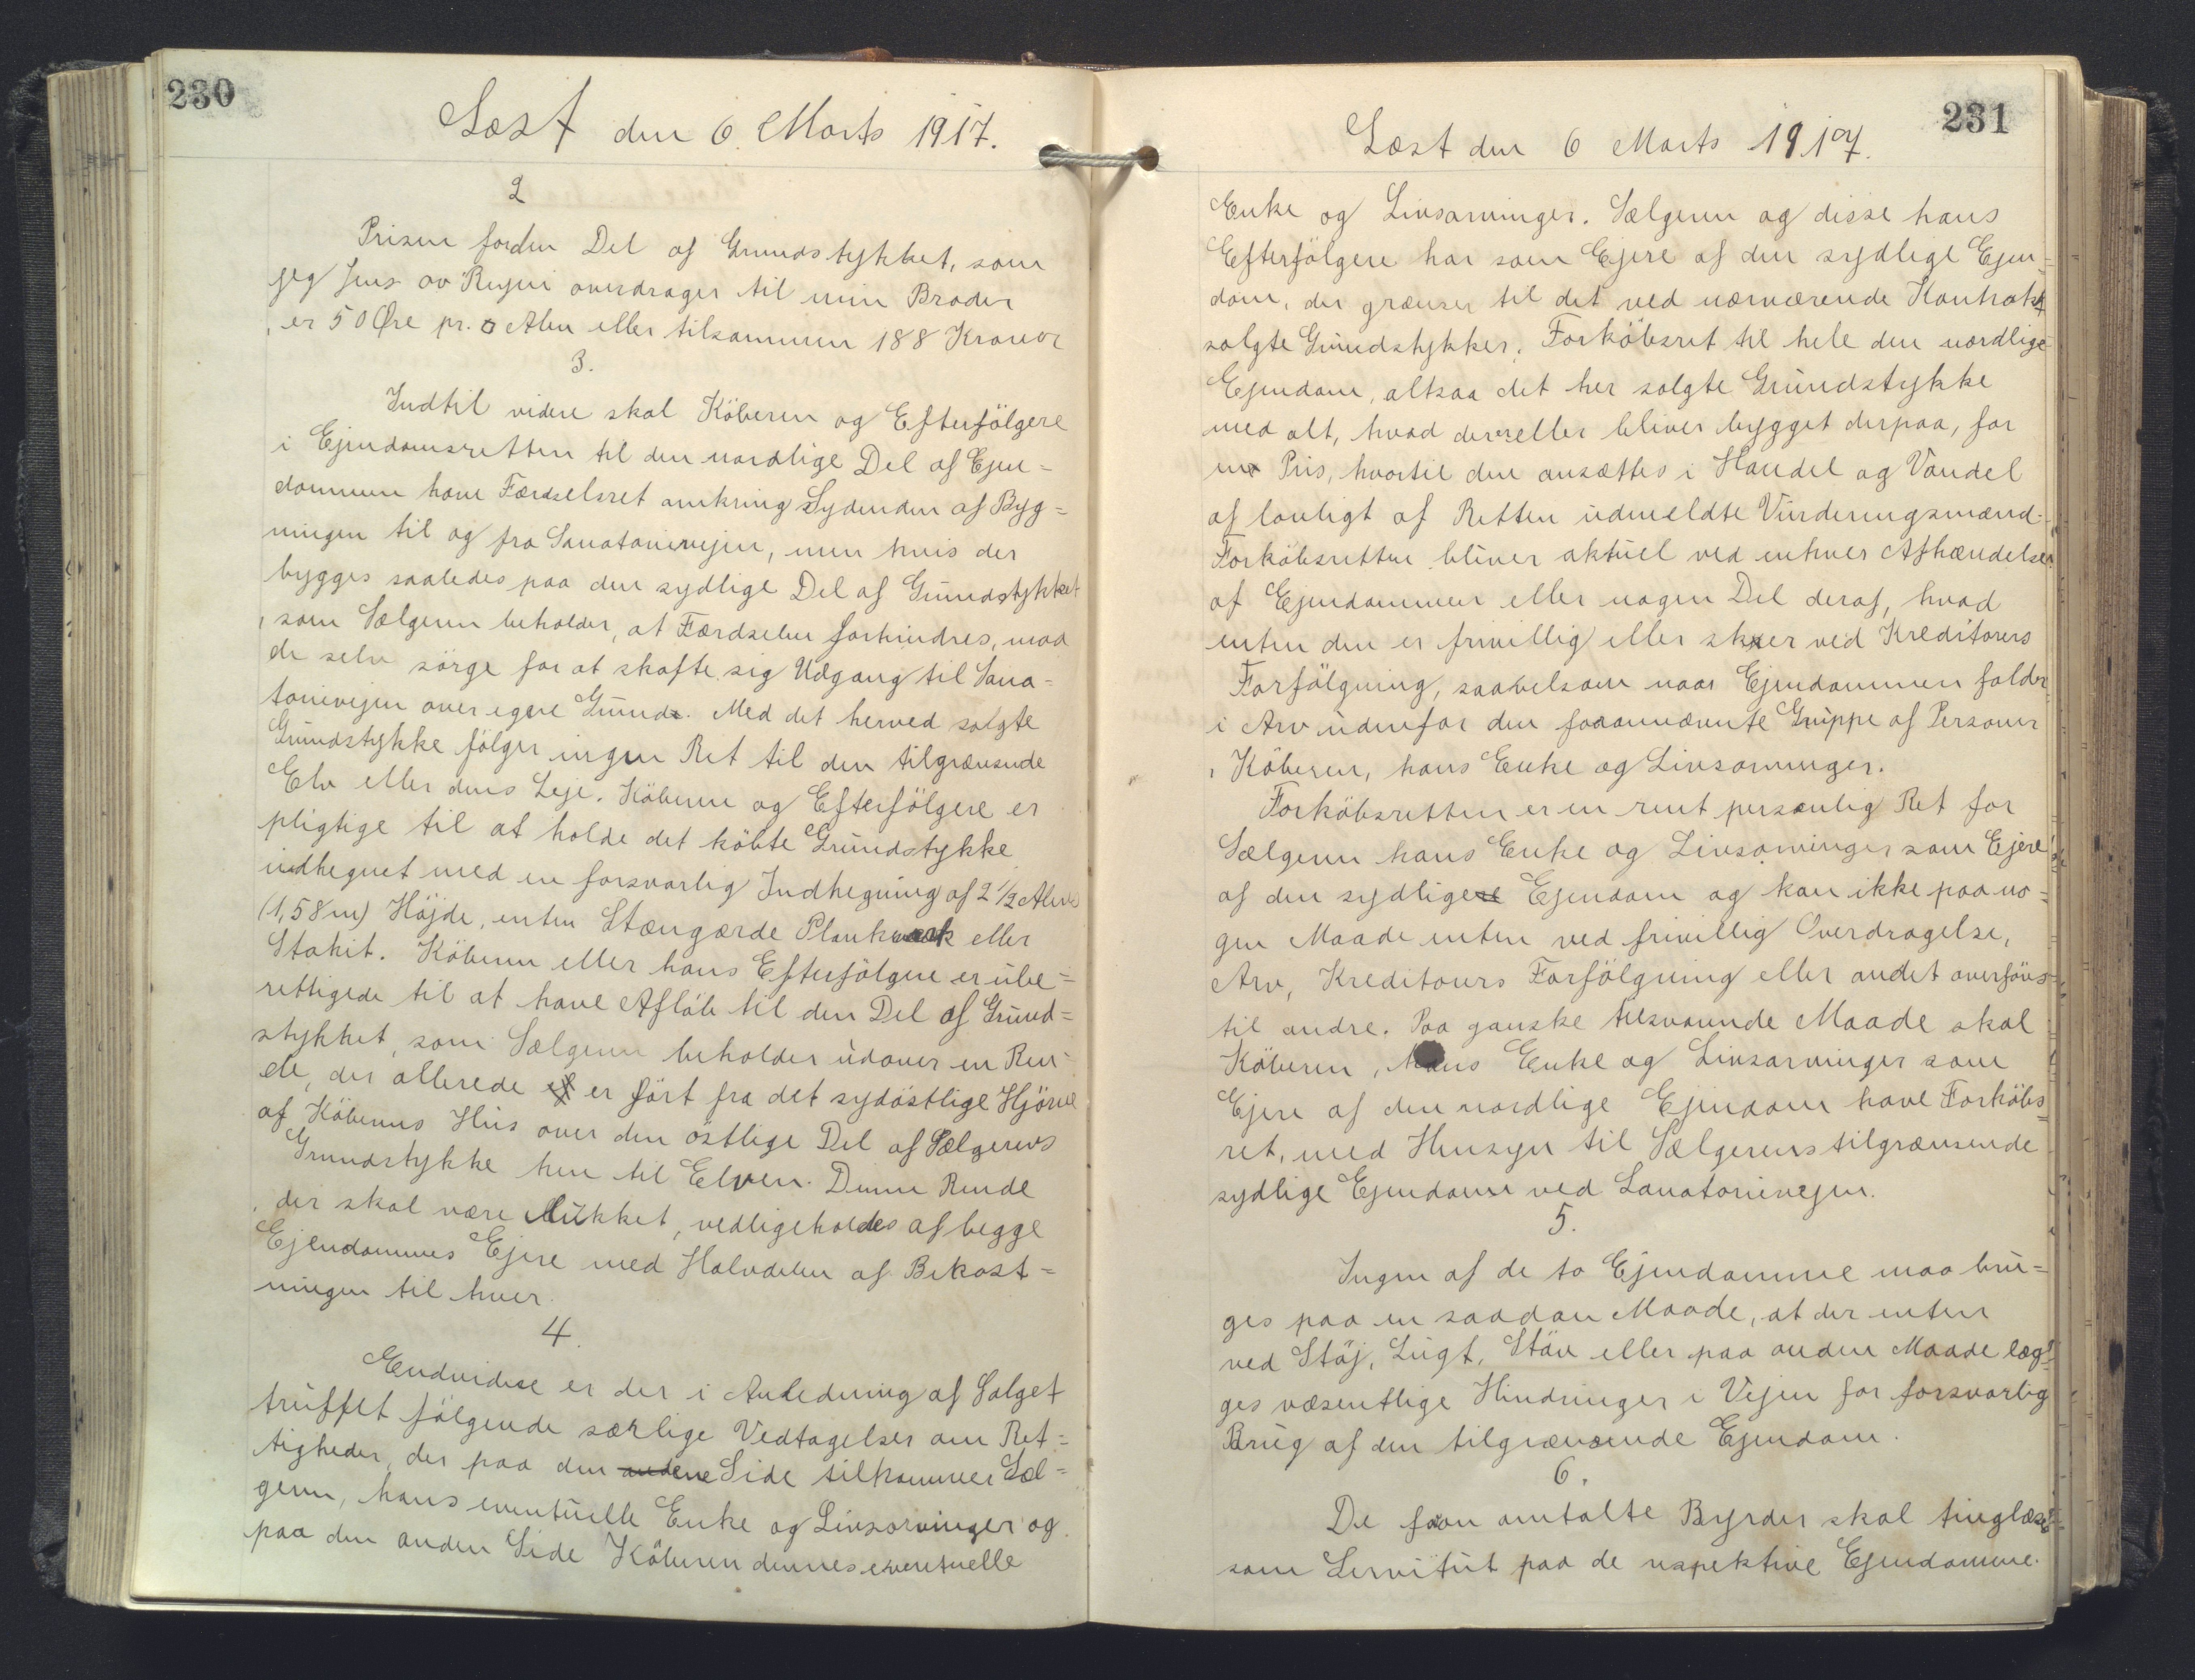 230
Læst den 6. Marts 1917.
2
Prisen for den Del af Grundstykket, som
jeg Jens av Reyni overdrager til min Broder
er 50 Øre pr. □ Alen eller tilsammen 188 Kroner
3.
Indtil videre skal Köberen og Efterfölgere
i Ejendomsretten til den nordlige Del af Ejen=
dommen have Færdselsret omkring Sydenden af Byg=
ningen til og fra Sanatorievejen, men hvis der
bygges saaledes paa den sydlige Del af Grundstykket
, som Sælgeren beholder, at Færdselen forhindres, maa
de selv sörge for at skaffe sig Udgang til Sana=
torievejen over egne Grund. Med det herved solgte
Grundstykke fölger ingen Ret til den tilgrænsende
Elv eller dens Leje. Köberen og Efterfölgere er
pligtige til at holde det köbte Grundstykke
indhegnet med en forsvarlig Indhegning af 2 1/2 Alens
(1,58 m) Höjde, enten Stængærde Plankværk eller
Stakit. Köberen eller hans Efterfölgere er ube=
rettigede til at have Aflöb til den Del af Grund=
stykket, som Sælgeren beholder udover en Ren=
de, der allerede er fört fra det sydöstlige Hjörne
af Köberens Hus over den östlige Del af Sælgerens
Grundstykke hen til Elven. Denne Rende
, der skal være lukket, vedligeholdes af begge
Ejendommes Ejere med Halvdelen af Bekost=
ningen til hver.
4.
Endvidere er der i Anledning af Salget
truffet fölgende særlige Vedtagelser om Ret=
tigheder, der paa den andene Side tilkommer Sæl=
geren, hans eventuelle Enke og Livsarvinger og
paa den anden Side Köberen dennes eventuelle
231
Læst den 6 Marts 1917.
Enke og Livsarvinger. Sælgeren og disse hans
Efterfölgere har som Ejere af den sydlige Ejen=
dom, der grænser til det ved nærværende Kontrakt
solgte Grundstykker, Forköbsret til hele den nordlige
Ejendom, altsaa det her solgte Grundstykke
med alt, hvad der er eller bliver bygget derpaa, for
en Pris, hvortil den ansættes i Handel og Vandel
af lovligt af Retten udmeldte Vurderingsmænd.
Forköbsretten bliver aktuel ved enhver Afhændelse
af Ejendommen eller nogen Del deraf, hvad
enten den er frivillig eller sker ved Kreditorers
Forfölgning, saavelsom naar Ejendommen falder
i Arv udenfor den forannævnte Gruppe af Personer
, Köberen, hans Enke og Livsarvinger.
Forköbsretten er en rent personlig Ret for
Sælgeren hans Enke og Livsarvinger som Ejere
af den sydligere Ejendom og kan ikke paa no=
gen Maade enten ved frivillig Overdragelse,
Arv, Kreditorers Forfölgning eller andet overföres
til andre. Paa ganske tilsvarende Maade skal
Köberen, hans Enke og Livsarvinger som
Ejere af den nordlige Ejendom have Forköbs=
ret, med Hensyn til Sælgerens tilgrænsende
sydlige Ejendom ved Sanatorievejen.
5.
Ingen af de to Ejendomme maa bru=
ges paa en saadan Maade, at der enten
ved Stöj, Lugt, Stöv eller paa anden Maade læg=
ges væsentlige Hindringer i Vejen for forsvarlig
Brug af den tilgrænsende Ejendom.
6.
De foran omtalte Byrder skal tinglæses
som Servitut paa de respektive Ejendomme.